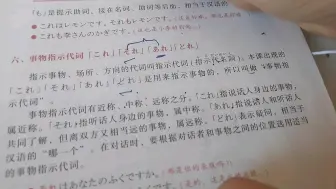 「も」是提示助词，接在名词、助词等后面，相当于汉语的
●これはレモンです。それもレモンです。
●これも李さんのかぎです。
六、事物指示代词「これ」「それ」「あれ」「どれ」
指示事物、场所、方向的代词叫指示代词（指示代名词）。本课出现的
「これ」「それ」「あれ」「どれ」是用来指示事物的，所以叫做“事物指
示代词”。
事物指示代词有近称、中称、远称之分，「これ」指说话人身边的事物，
属近称。「それ」指听话人身边的事物，属中称。「あれ」指说话人和听话人
共同了解，但离双方又相当远的事物，属远称。「どれ」表示疑问，相当于
汉语的“哪一个”。在对话时，要根据对话者和事物之间的位置选用适当
的事物指示代词。
はあなたのふくですか。